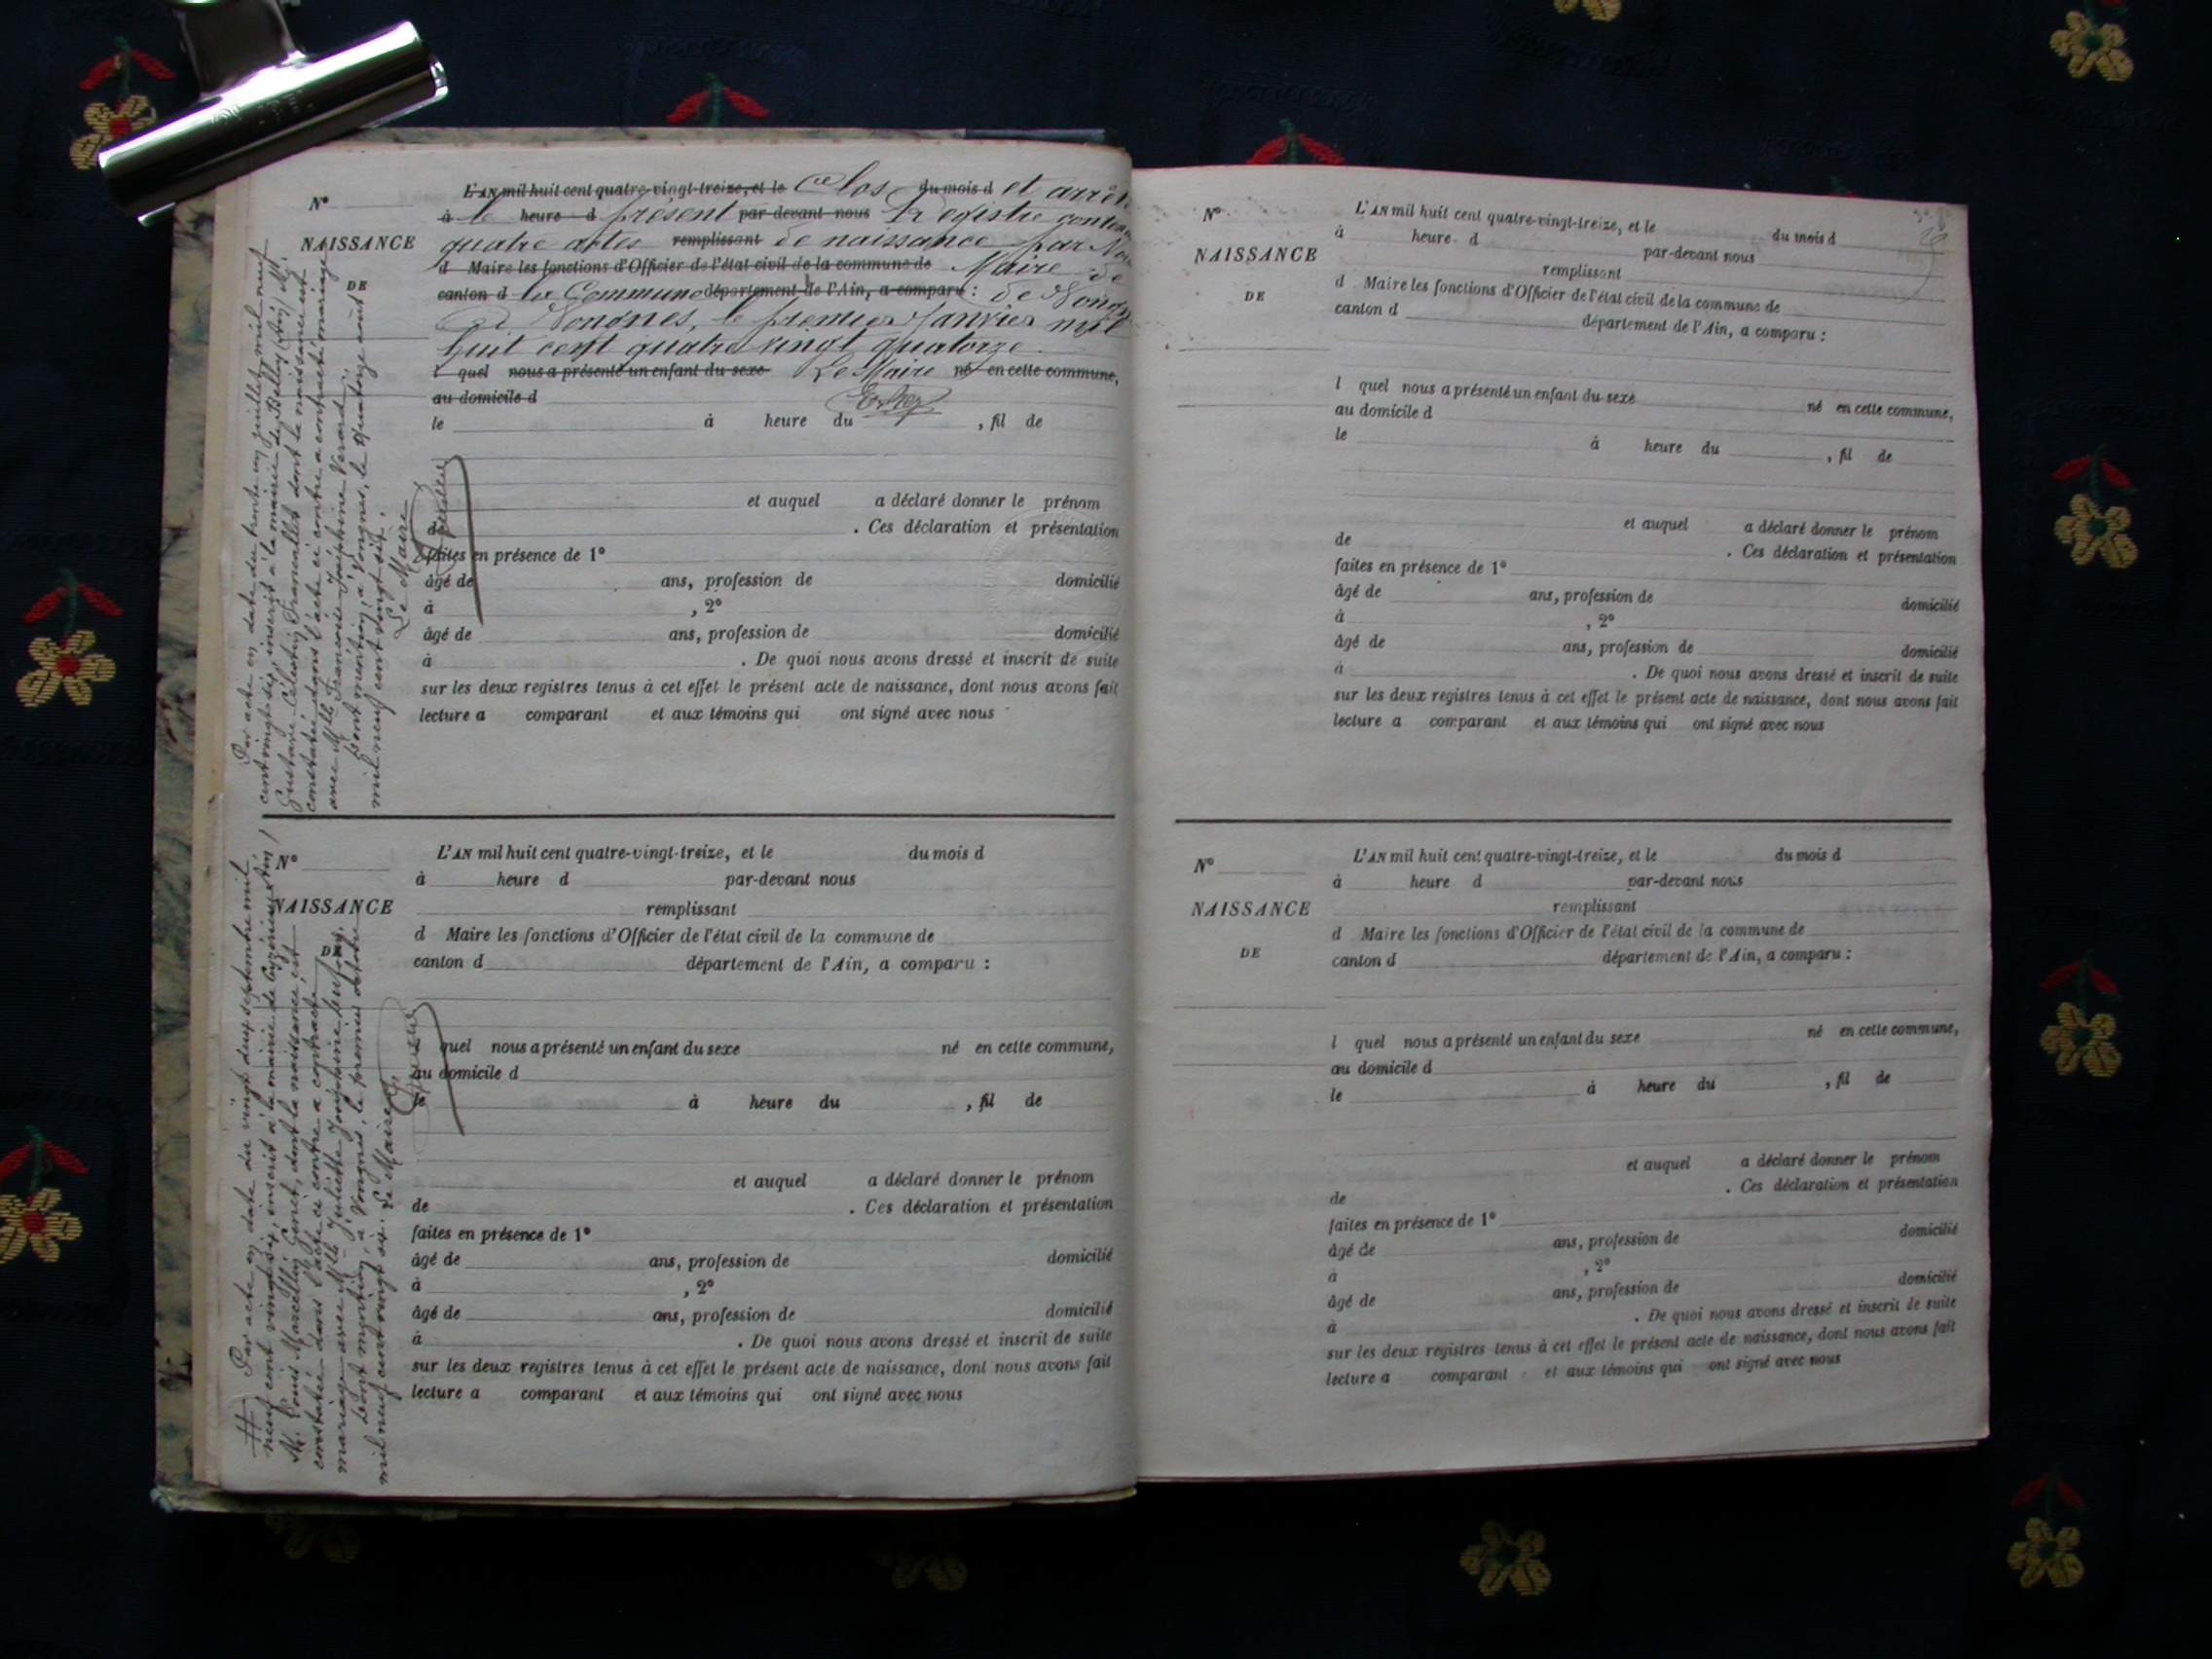 L'AN mil huit cent quatre-vingt-treize, et le Clos du mois d et arrêté
N°
à le heure d présent par-devant nous Registre conten
NAISSANCE
quatre actes remplissant de naissance par No
d Maire les fonctions d'Officier de l'état civil de la commune de Maire de
DE
canton d la Commune département de l'Ain, a comparu : de Vongn
A Vongnes, le premier Janvier mil
huit cent quatre vingt quatorze
l quel nous a présenté un enfant du sexe Le Maire né en cette commune,
au domicile d
le à heure du , fil de
et auquel a déclaré donner le prénom
de . Ces déclaration et présentation
faites en présence de 1°
âgé de ans, profession de domicilié
à , 2°
âgé de ans, profession de domicilié
à . De quoi nous avons dressé et inscrit de suite
sur les deux registres tenus à cet effet le présent acte de naissance, dont nous avons fait
lecture a comparant et aux témoins qui ont signé avec nous
Par acte en date du trente un juillet mil neuf
cent vingt-six, inscrit à la mairie de Belley (Ain) M.
Gustave Célestin dont la naissance est
constatée dans l'acte ci contre a contracté mariage
avec Mlle Françoise Joséphine Verard
Dont mention, à Vongnes, le quatorze août
mil neuf cent vingt-six.
Le Maire
N°
L'AN mil huit cent quatre-vingt-treize, et le du mois d
à heure d par-devant nous
NAISSANCE
remplissant
d Maire les fonctions d'Officier de l'état civil de la commune de
DE
canton d département de l'Ain, a comparu :
quel nous a présenté un enfant du sexe né en cette commune,
au domicile d
le à heure du , fil de
et auquel a déclaré donner le prénom
de . Ces déclaration et présentation
faites en présence de 1°
âgé de ans, profession de domicilié
à , 2°
âgé de ans, profession de domicilié
à . De quoi nous avons dressé et inscrit de suite
sur les deux registres tenus à cet effet le présent acte de naissance, dont nous avons fait
lecture a comparant et aux témoins qui ont signé avec nous
Par acte en date du vingt deux septembre mil
neuf cent vingt-six, inscrit à la mairie de (Ain)
M. Louis Marcellin dont la naissance est
constatée dans l'acte ci contre a contracté
mariage avec Mlle Juliette Joséphine
Dont mention, à Vongnes, le premier octobre
mil neuf cent vingt six. Le Maire
N°
L'AN mil huit cent quatre-vingt-treize, et le du mois d
à heure d par-devant nous
NAISSANCE
remplissant
d Maire les fonctions d'Officier de l'état civil de la commune de
DE
canton d département de l'Ain, a comparu :
l quel nous a présenté un enfant du sexe né en cette commune,
au domicile d
le à heure du , fil de
et auquel a déclaré donner le prénom
de . Ces déclaration et présentation
faites en présence de 1°
âgé de ans, profession de domicilié
à , 2°
âgé de ans, profession de domicilié
à . De quoi nous avons dressé et inscrit de suite
sur les deux registres tenus à cet effet le présent acte de naissance, dont nous avons fait
lecture a comparant et aux témoins qui ont signé avec nous
N°
L'AN mil huit cent quatre-vingt-treize, et le du mois d
à heure d par-devant nous
NAISSANCE
remplissant
d Maire les fonctions d'Officier de l'état civil de la commune de
DE
canton d département de l'Ain, a comparu :
l quel nous a présenté un enfant du sexe né en cette commune,
au domicile d
le à heure du , fil de
et auquel a déclaré donner le prénom
de . Ces déclaration et présentation
faites en présence de 1°
âgé de ans, profession de domicilié
à , 2°
âgé de ans, profession de domicilié
à . De quoi nous avons dressé et inscrit de suite
sur les deux registres tenus à cet effet le présent acte de naissance, dont nous avons fait
lecture a comparant et aux témoins qui ont signé avec nous